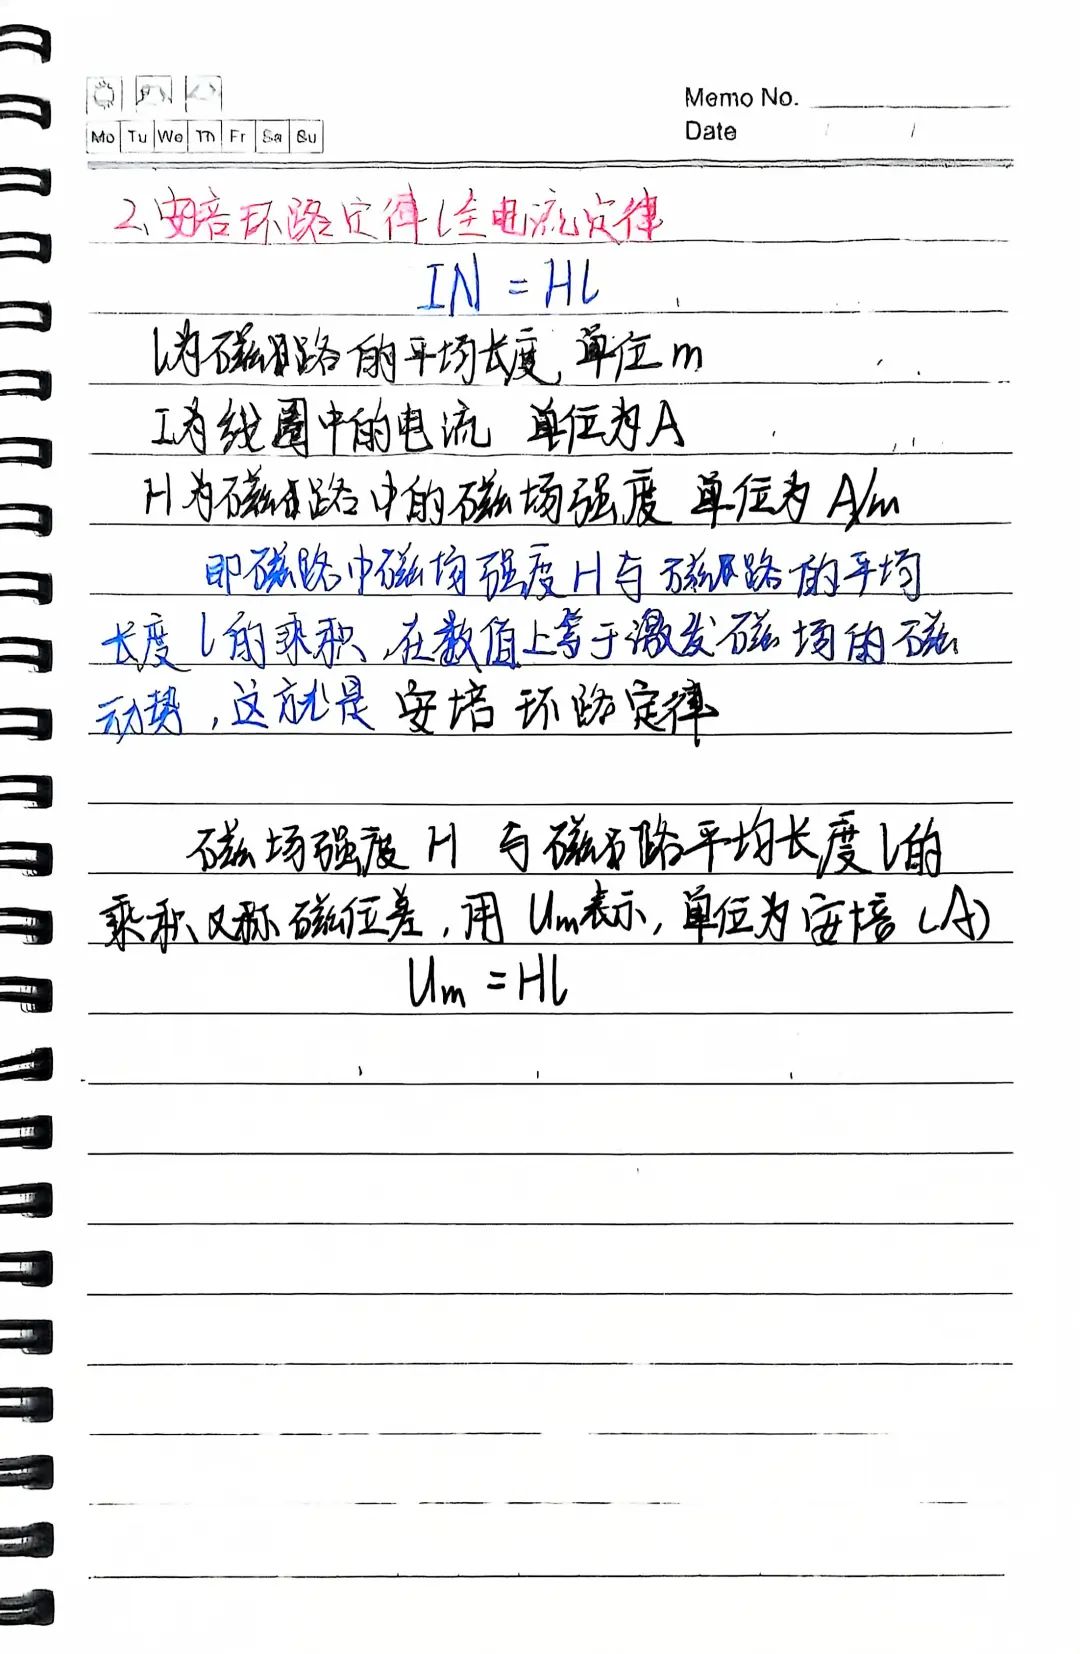 Memo No.
Mo Tu We Th Fr Sa Su
Date / /
2、安培环路定律(全电流定律
IN = Hl
l为磁路的平均长度,单位m
I为线圈中的电流 单位为A
H为磁路中的磁场强度 单位为 A/m
即磁路中磁场强度H与磁路的平均
长度l的乘积,在数值上等于激发磁场的磁
动势,这就是安培环路定律
磁场强度H 与磁路平均长度l的
乘积又称磁位差,用Um表示,单位为安培(A)
Um = Hl